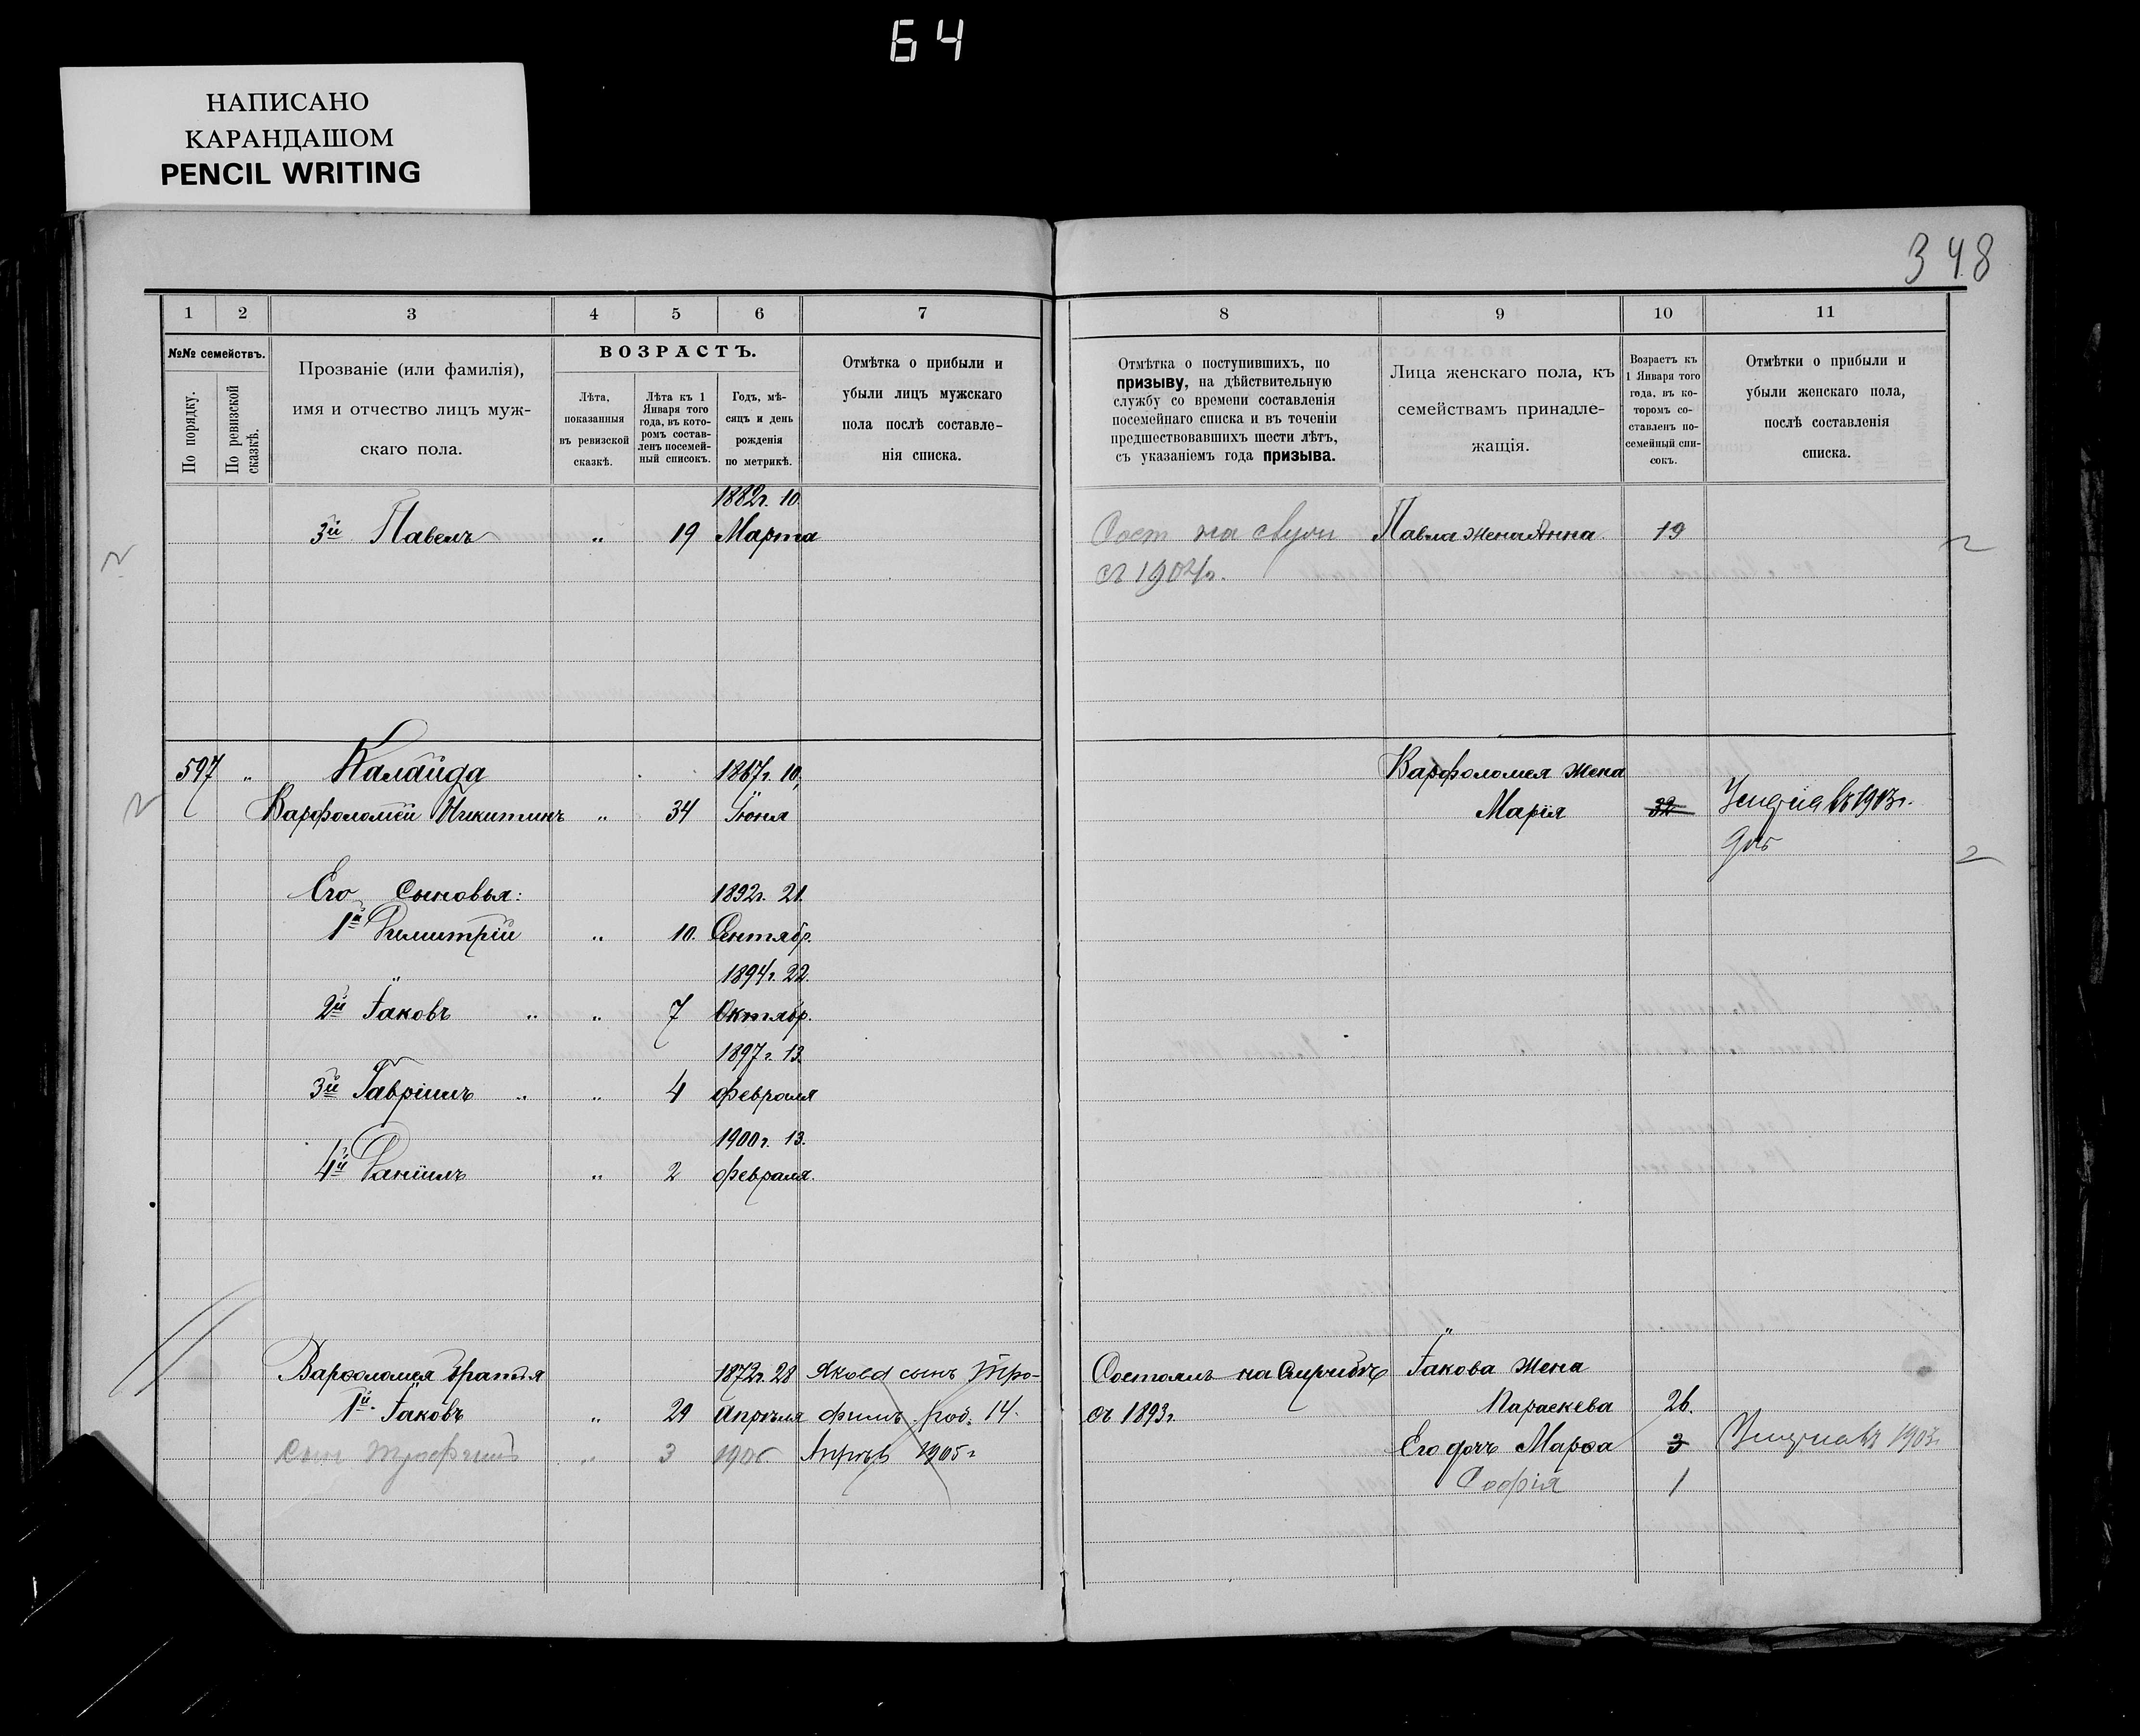 64
НАПИСАНО
КАРАНДАШОМ
PENCIL WRITING
348
1 2 3 4 5 6 7 8 9 10 11
№№ семействъ.
По порядку.
По ревизской сказкѣ.
Прозваніе (или фамилія),
имя и отчество лицъ муж-
скаго пола.
ВОЗРАСТЪ.
Лѣта,
показанныя
въ ревизской
сказкѣ.
Лѣта къ 1
Января того
года, въ кото-
ромъ состав-
ленъ посемей-
ный списокъ.
Годъ, мѣ-
сяцъ и день
рожденія
по метрикѣ.
Отмѣтка о прибыли и
убыли лицъ мужскаго
пола послѣ составле-
нія списка.
Отмѣтка о поступившихъ, по
призыву, на дѣйствительную
службу со времени составленія
посемейнаго списка и въ теченіи
предшествовавшихъ шести лѣтъ,
съ указаніемъ года призыва.
Лица женскаго пола, къ
семействамъ принадле-
жащія.
Возрастъ къ
1 Января того
года, въ ко-
торомъ со-
ставленъ по-
семейный спи-
сокъ.
Отмѣтки о прибыли и
убыли женскаго пола,
послѣ составленія
списка.
1882г. 10
3й Павелъ " 19 Марта Сост на Павла жена Анна 19
съ 1904г.
597 " Калайда 1867г. 10, Варфоломея жена
Варфоломей Никитинъ " 34 Іюня Марія 32 въ 1903г.
Его Сыновья: 1892г. 21.
1й Димитрій " 10. Сентябр.
1894г. 22.
2й Іаковъ " " 7 Октябр.
1897г. 13.
3й Гавріилъ " " 4 февраля
1900г. 13.
4й Даніилъ " 2 февраля.
Варѳоломея братья 1872г. 28 Якова сынъ Тро- Состоялъ на Іакова жена
1й Іаковъ " 29 Апрѣля фимъ род. 14 съ 1893г. Параскева 26.
Сынъ Трофимъ " 3 1905 Апрѣля 1905г Его дочь Марѳа 3 1903г.
Софія 1